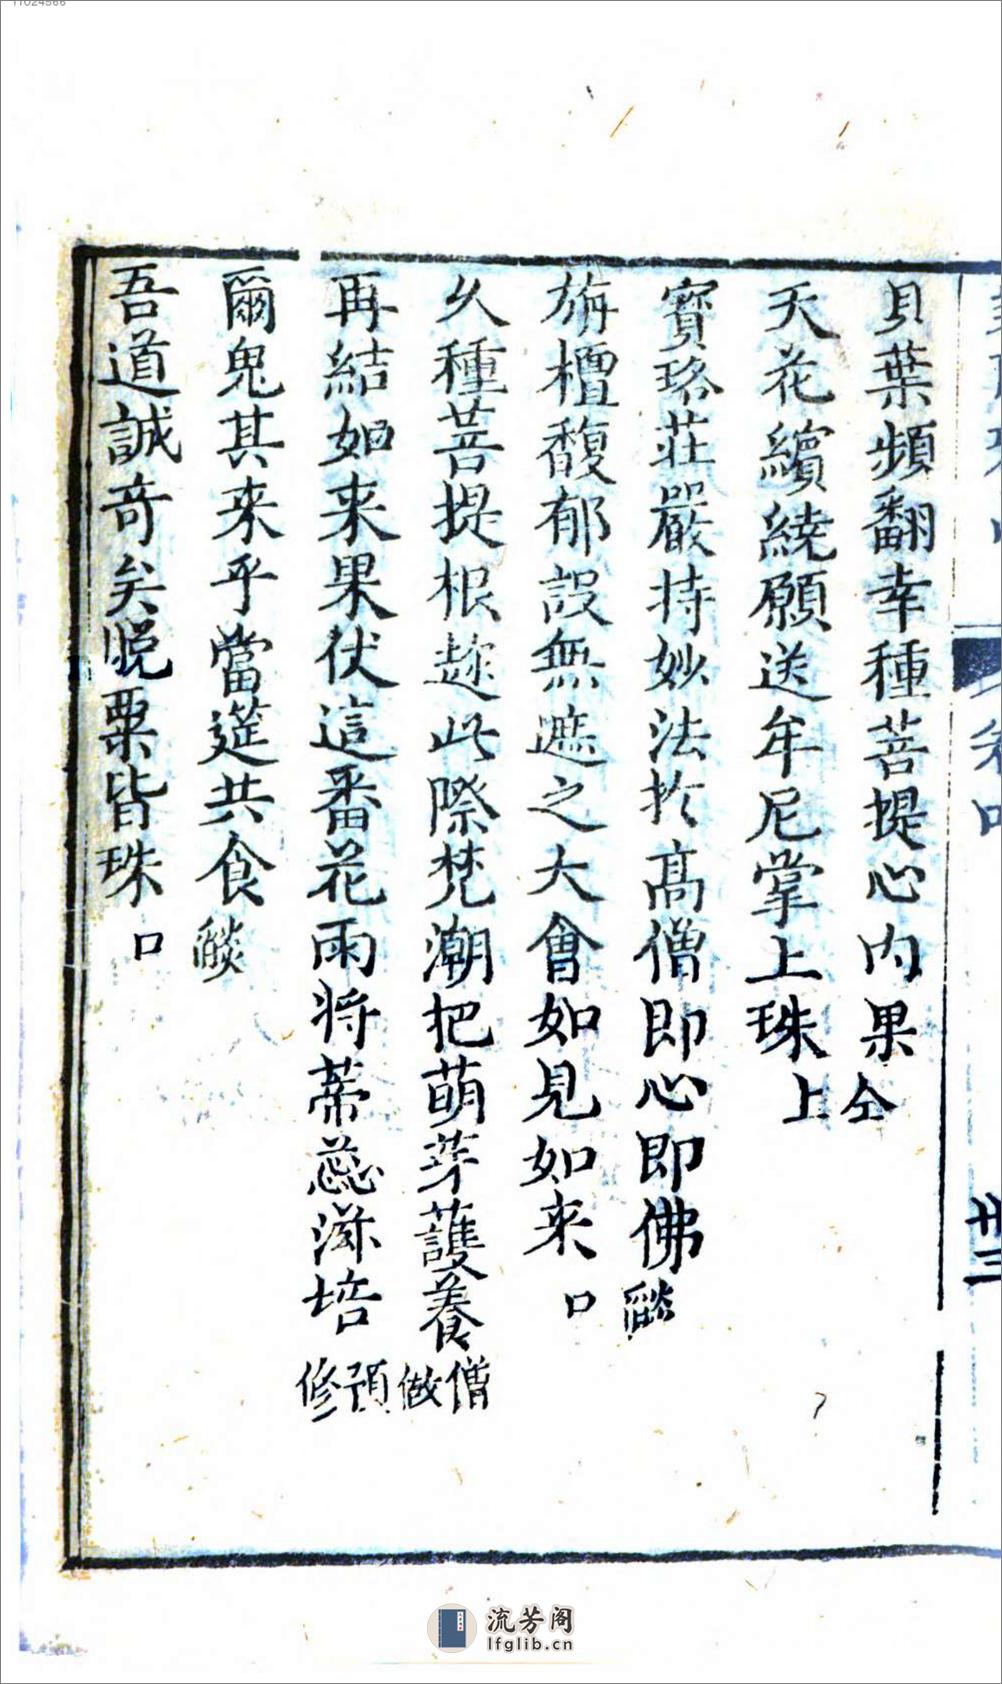 貝葉頻翻幸種菩提心内果仝
天花繽繞願送牟尼掌上珠上
寳珞莊嚴持妙法扵髙僧即心即佛 燄口
旃檀馥郁設無遮之大會如見如来
久種菩提根趂此際梵潮把萌芽護養 僧做
再結如来果伏這番花雨将蒂蕊滋培 預修
爾鬼其来乎當筵共食 燄口
吾道誠竒矣脱粟皆珠
卅三
流芳阁
lfglib.cn